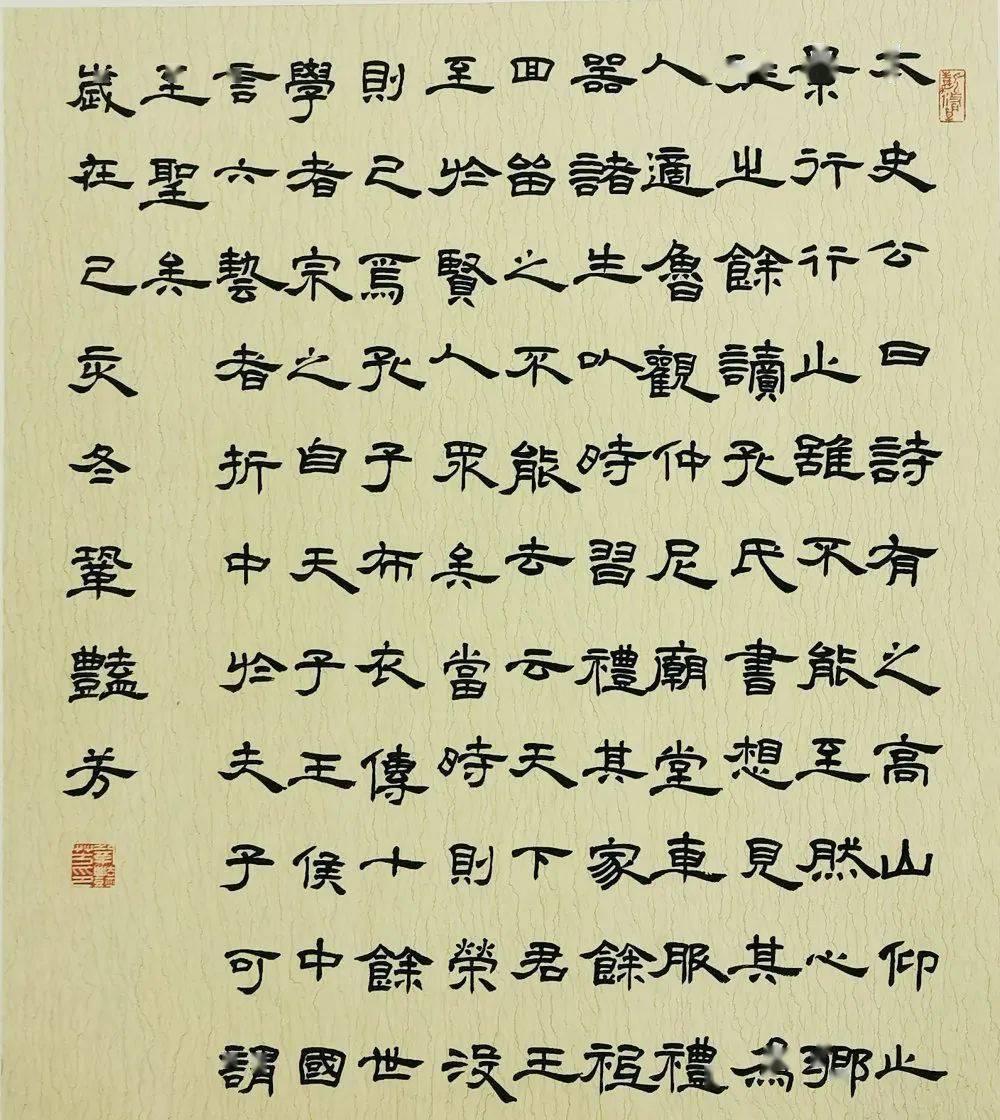 太史公曰詩有之高山仰止
景行行止雖不能至然心鄉
往之餘讀孔氏書想見其為
人適魯觀仲尼廟堂車服禮
器諸生以時習禮其家餘祗
回留之不能去云天下君王
至於賢人眾矣當時則榮沒
則已焉孔子布衣傳十餘世
學者宗之自天子王侯中國
言六藝者折中於夫子可謂
至聖矣
歲在己亥冬鞏豔芳